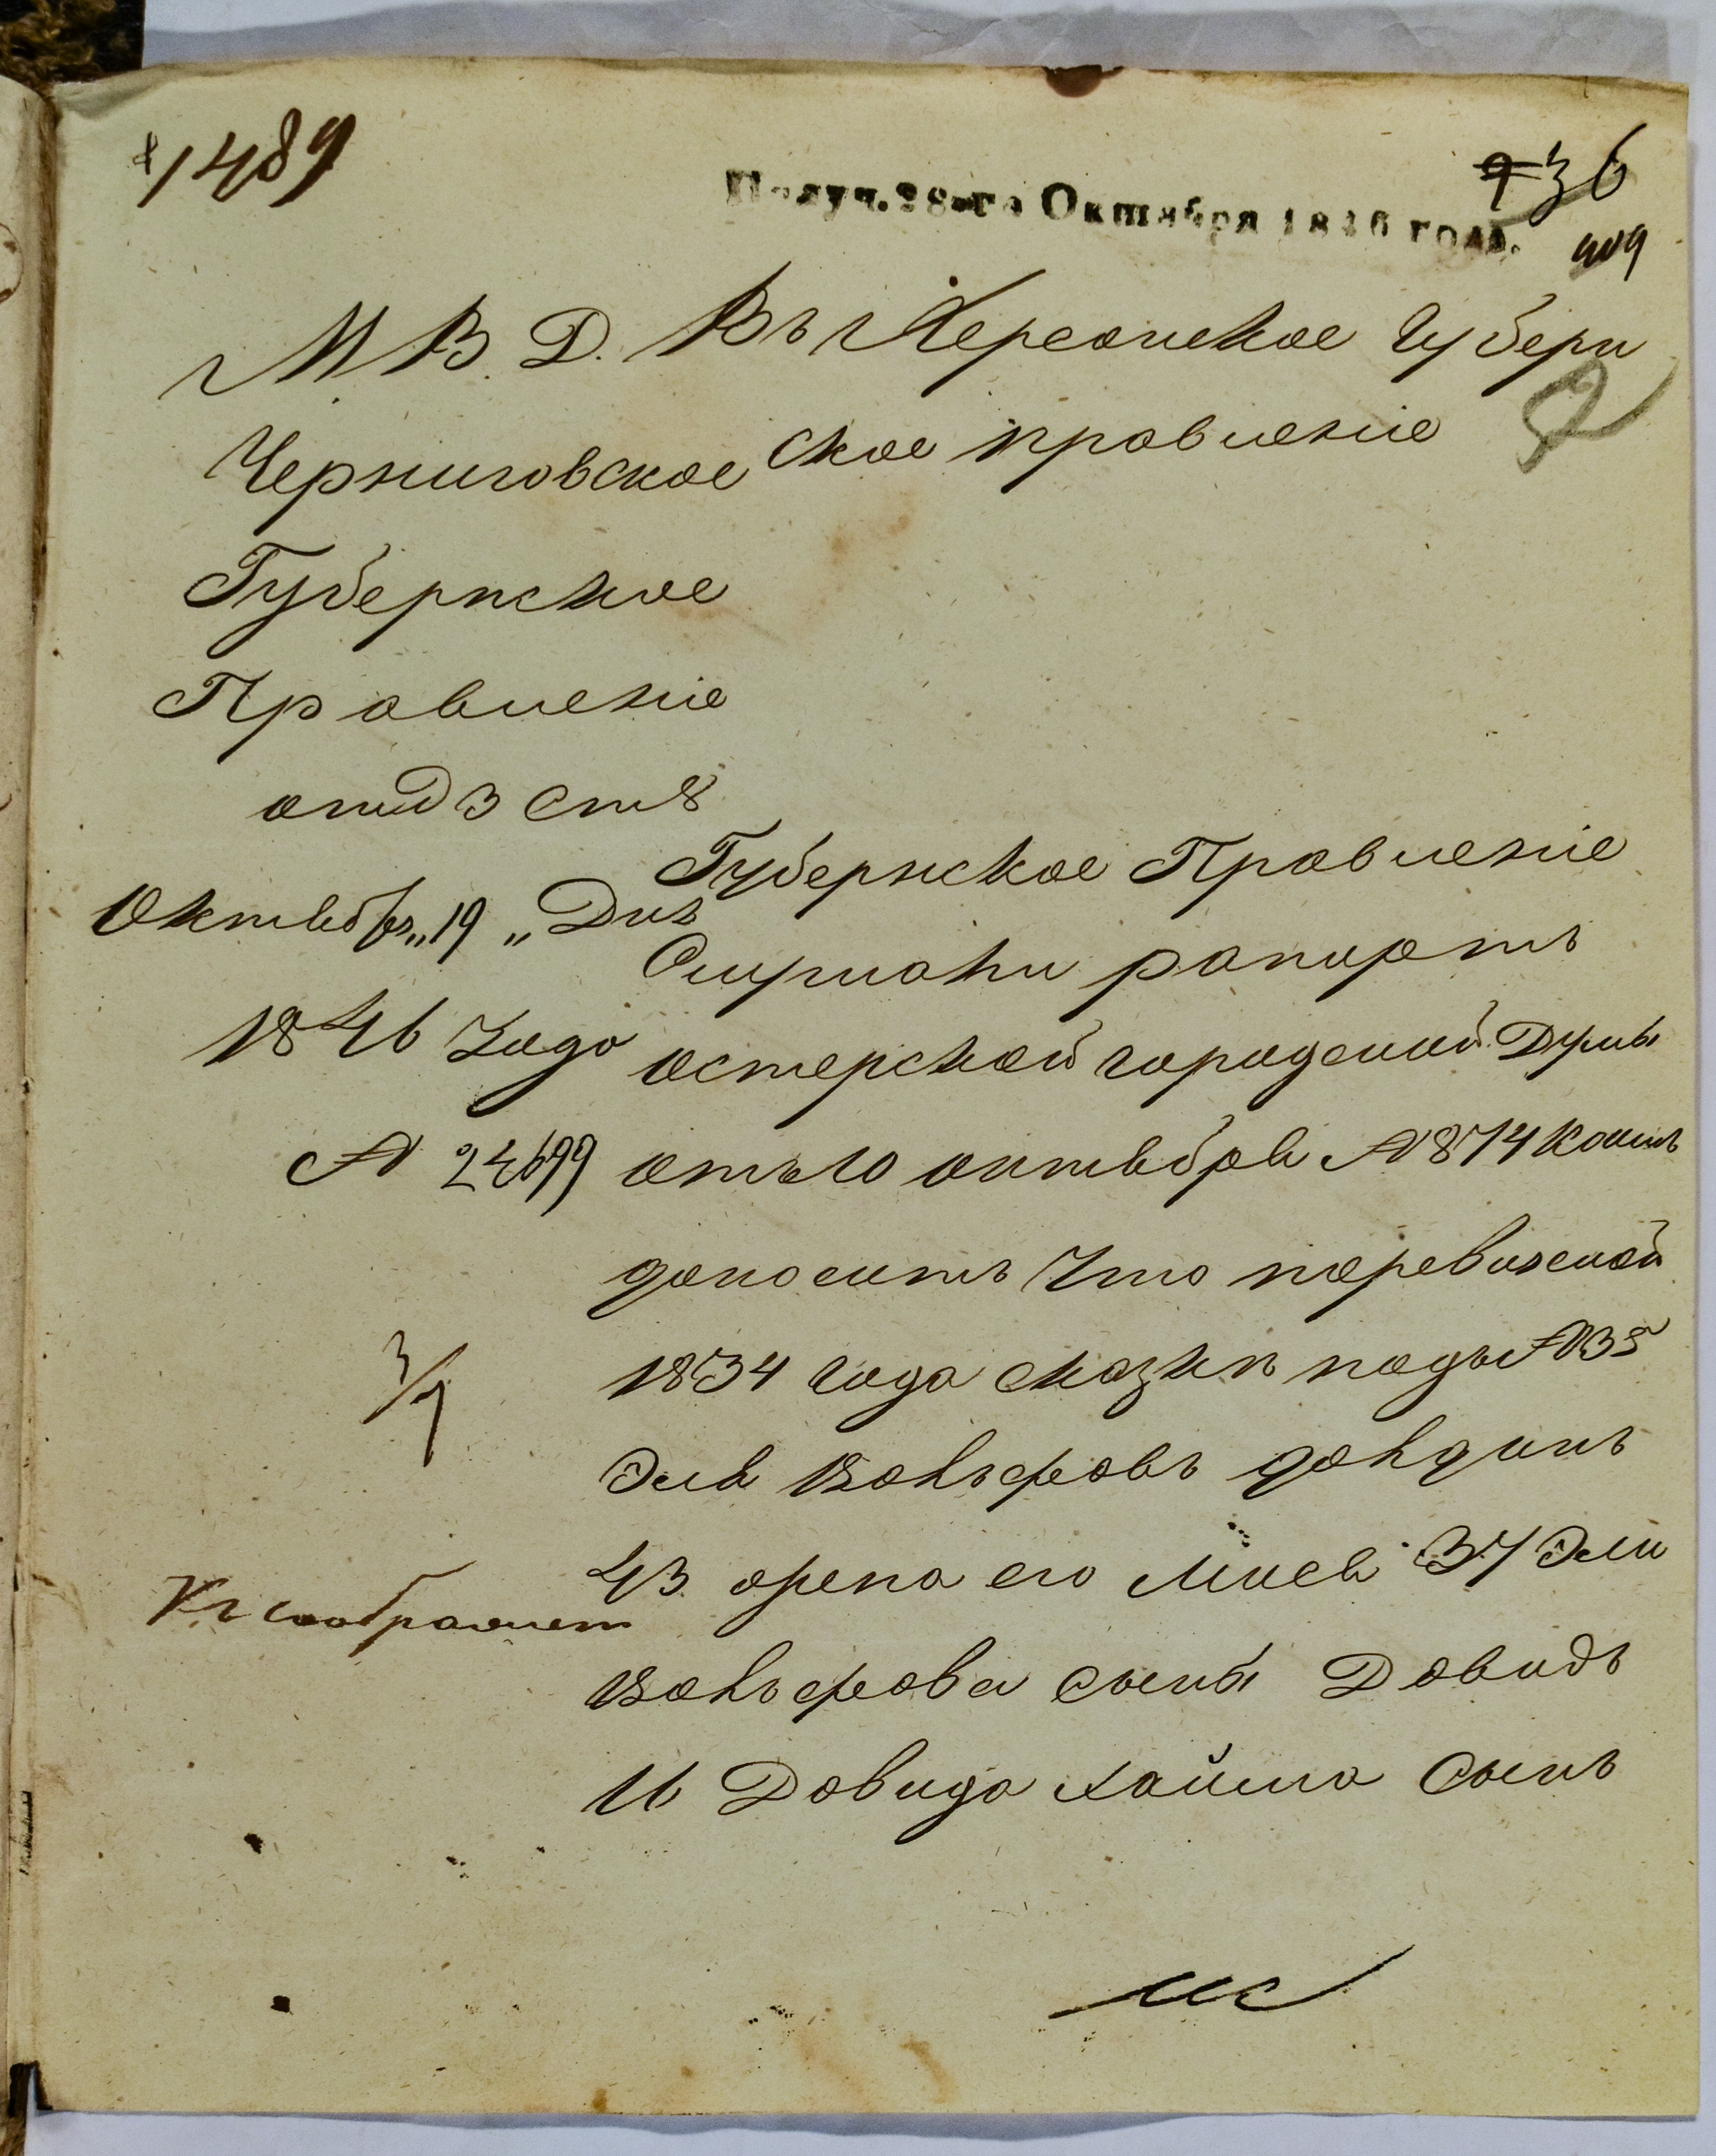 1489
Получ. 28-го Октября 1846 года.
36
М. В. Д.
Черниговское
Губернское
Правление
отд 3 ст 8
Октября „19„ Дня
1846 Года
№ 24699
3/7
Въ Херсонское Губерн
ское правление
Губернское Правление
Слушали рапортъ
остерской городской Думы
отъ 10 октября № 874 коимъ
доноситъ Что поревизской
1834 года сказки подъ № 35
Эля Вольфовъ
43 его 37 Эли
Вольфова сыны Довидъ
16 Довида Хаима сынъ